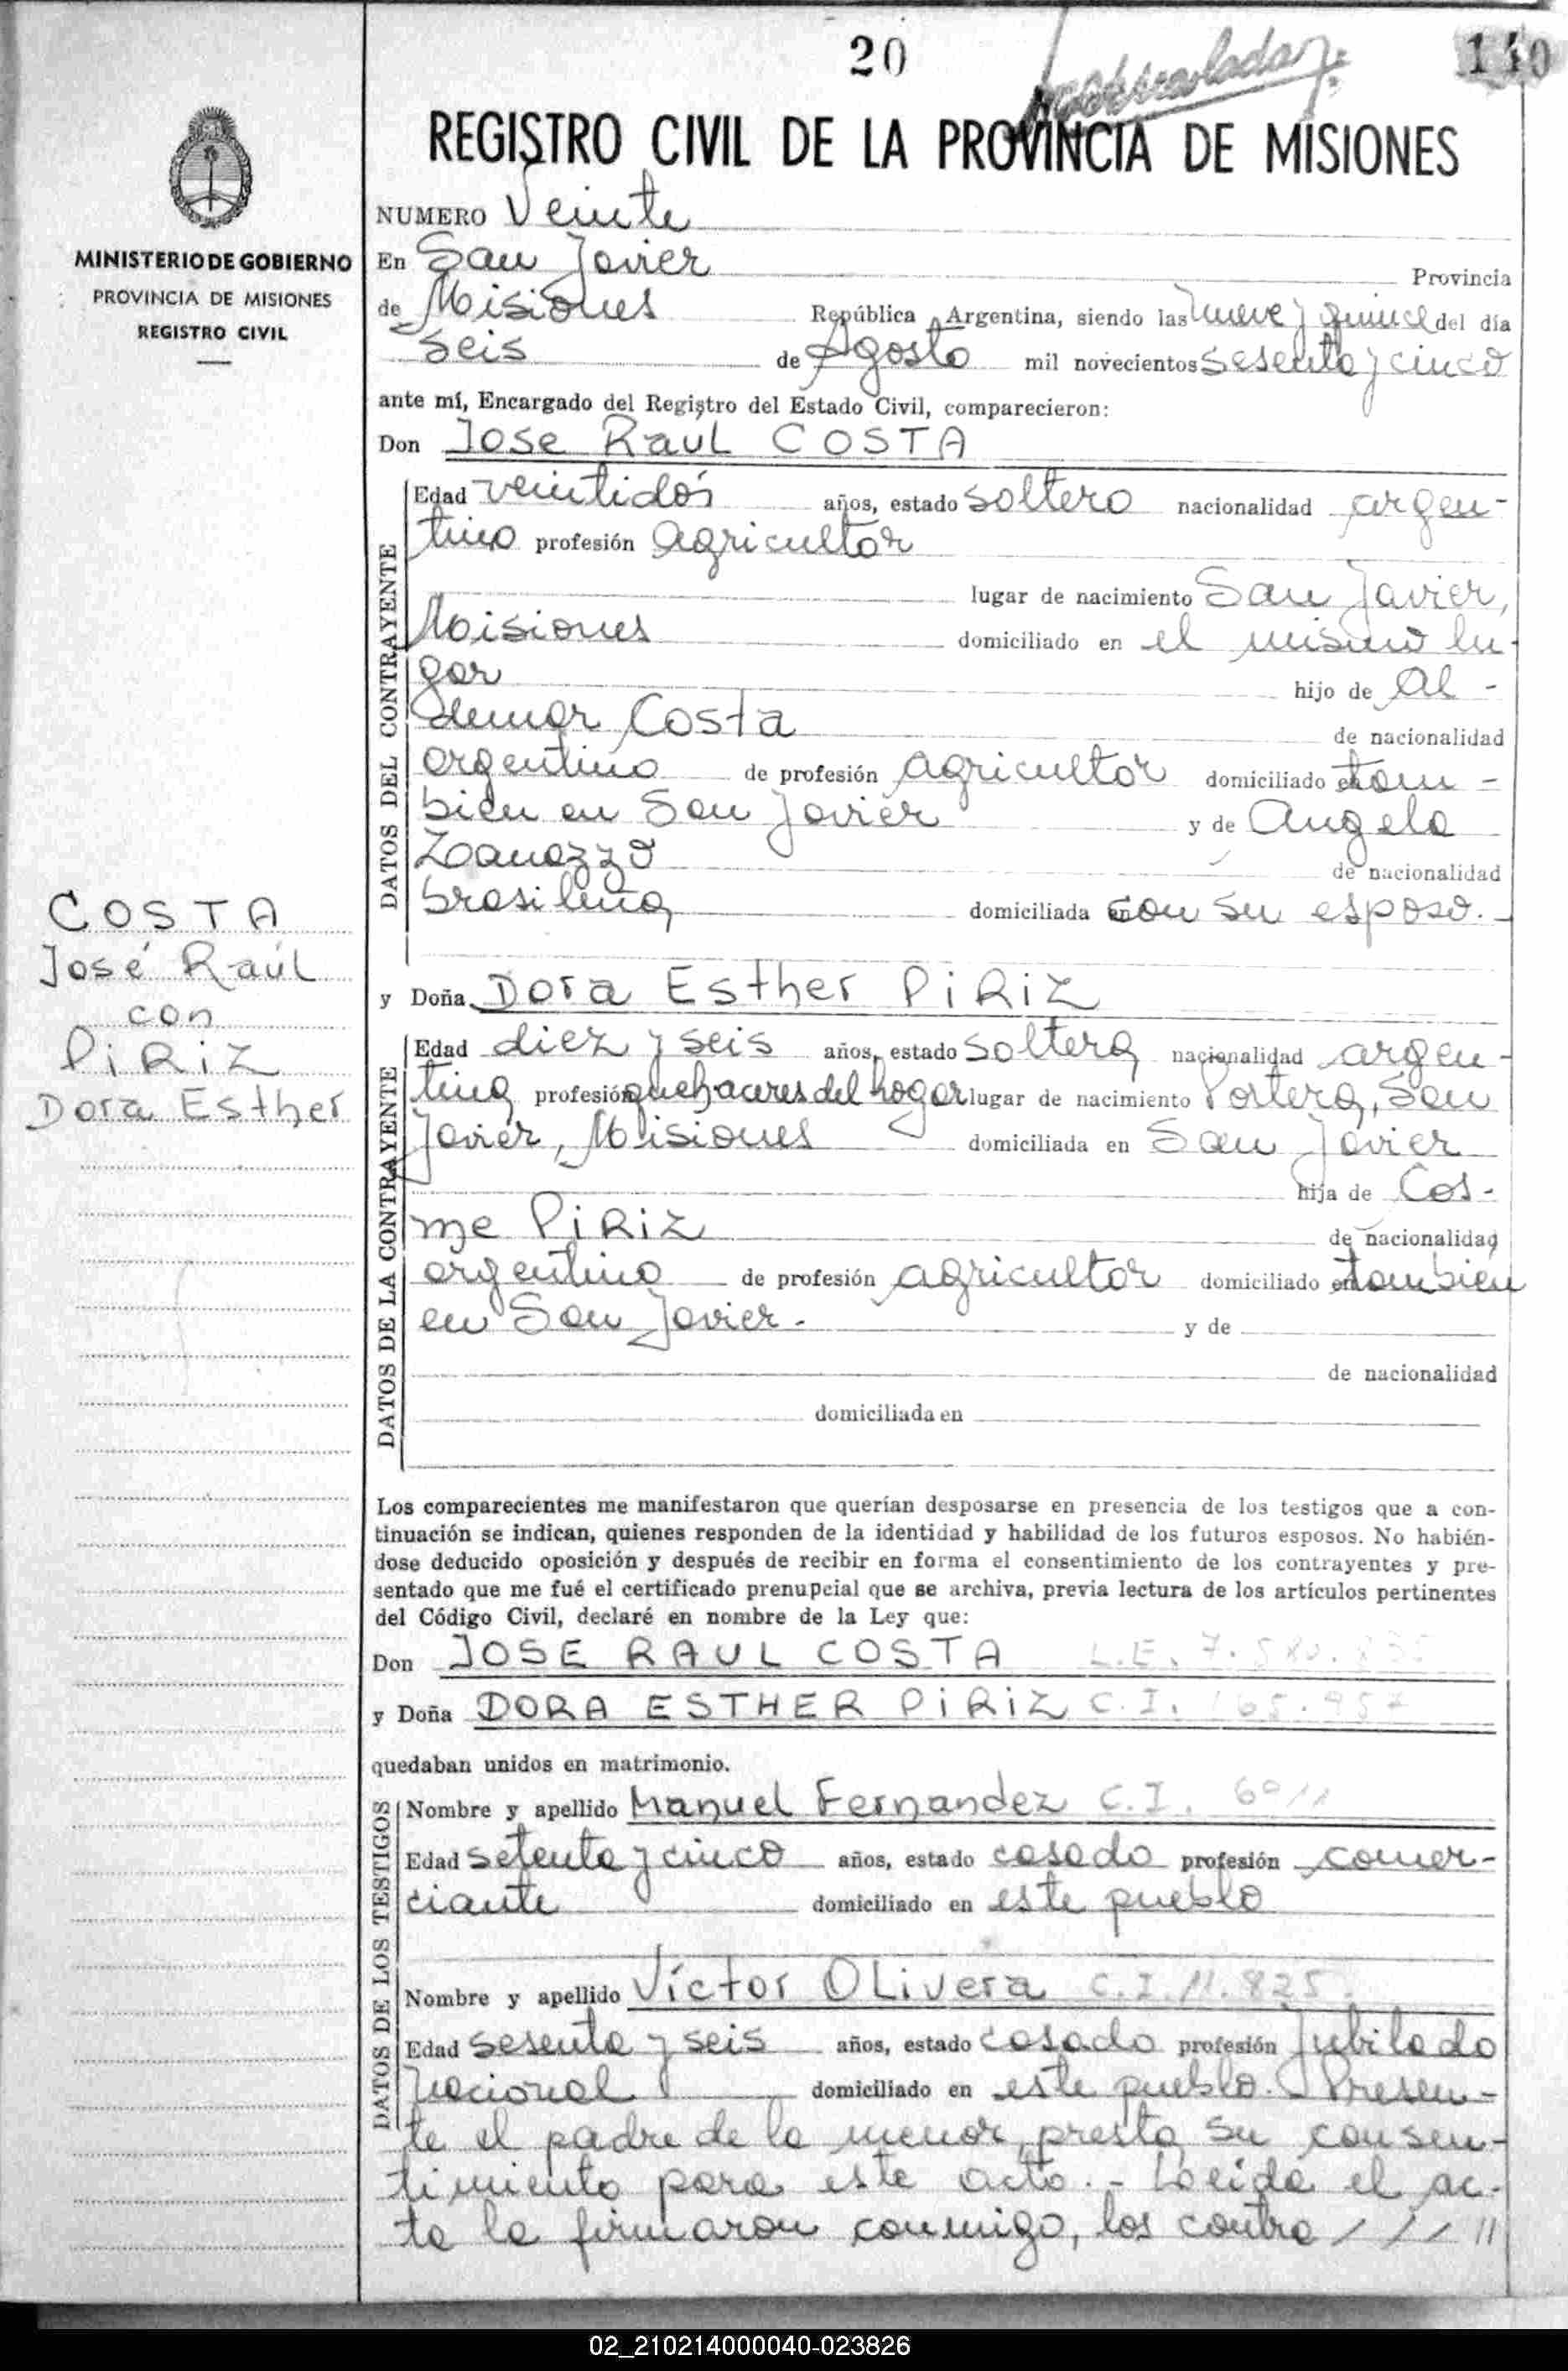 20
140
REGISTRO CIVIL DE LA PROVINCIA DE MISIONES
MINISTERIO DE GOBIERNO
PROVINCIA DE MISIONES
REGISTRO CIVIL
NUMERO Veinte
En San Javier Provincia
de Misiones República Argentina, siendo las nueve y quince del día
seis de Agosto mil novecientos sesenta y cinco
ante mí, Encargado del Registro del Estado Civil, comparecieron:
Don Jose Raul COSTA
DATOS DEL CONTRAYENTE
Edad veintidós años, estado soltero nacionalidad argen-
tino profesión agricultor
lugar de nacimiento San Javier,
Misiones domiciliado en el mismo lu-
gar hijo de Al-
demar Costa de nacionalidad
argentino de profesión agricultor domiciliado en tam-
bien en San Javier y de Angela
Zanazzo de nacionalidad
brasileña domiciliada con su esposo.-
COSTA
José Raúl
con
PiRiZ
Dora Esther
y Doña Dora Esther PiRiZ
DATOS DE LA CONTRAYENTE
Edad diez y seis años, estado soltera nacionalidad argen-
tina profesión quehaceres del hogar lugar de nacimiento Portera, San
Javier, Misiones domiciliada en San Javier
hija de Cos-
me PiRiZ de nacionalidad
argentino de profesión agricultor domiciliado en tambien
en San Javier.- y de
de nacionalidad
domiciliada en
Los comparecientes me manifestaron que querían desposarse en presencia de los testigos que a con-
tinuación se indican, quienes responden de la identidad y habilidad de los futuros esposos. No habién-
dose deducido oposición y después de recibir en forma el consentimiento de los contrayentes y pre-
sentado que me fué el certificado prenupcial que se archiva, previa lectura de los artículos pertinentes
del Código Civil, declaré en nombre de la Ley que:
Don JOSE RAUL COSTA L.E.
y Doña DORA ESTHER PiRiZ C.I.
quedaban unidos en matrimonio.
DATOS DE LOS TESTIGOS
Nombre y apellido Manuel Fernandez C.I.
Edad setenta y cinco años, estado casado profesión comer-
ciante domiciliado en este pueblo
Nombre y apellido Víctor OLivera C.I. 11.825
Edad sesenta y seis años, estado casado profesión Jubilado
Nacional domiciliado en este pueblo. Presen-
te el padre de la menor, presta su consen-
timiento para este acto.- Leida el ac-
ta la firmaron conmigo, los contra / / / //
02_210214000040-023826